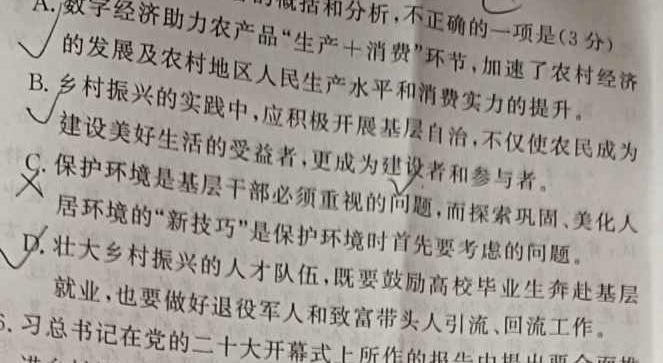 的概括和分析,不正确的一项是(3分)
A.数字经济助力农产品“生产＋消费”环节,加速了农村经济
的发展及农村地区人民生产水平和消费实力的提升。
B.乡村振兴的实践中,应积极开展基层自治,不仅使农民成为
建设美好生活的受益者,更成为建设者和参与者。
C.保护环境是基层干部必须重视的问题,而探索巩固、美化人
居环境的“新技巧”是保护环境时首先要考虑的问题。
D.壮大乡村振兴的人才队伍,既要鼓励高校毕业生奔赴基层
就业,也要做好退役军人和致富带头人引流、回流工作。
习总书记在党的二十大开幕式上所作的报告中提出要全面推